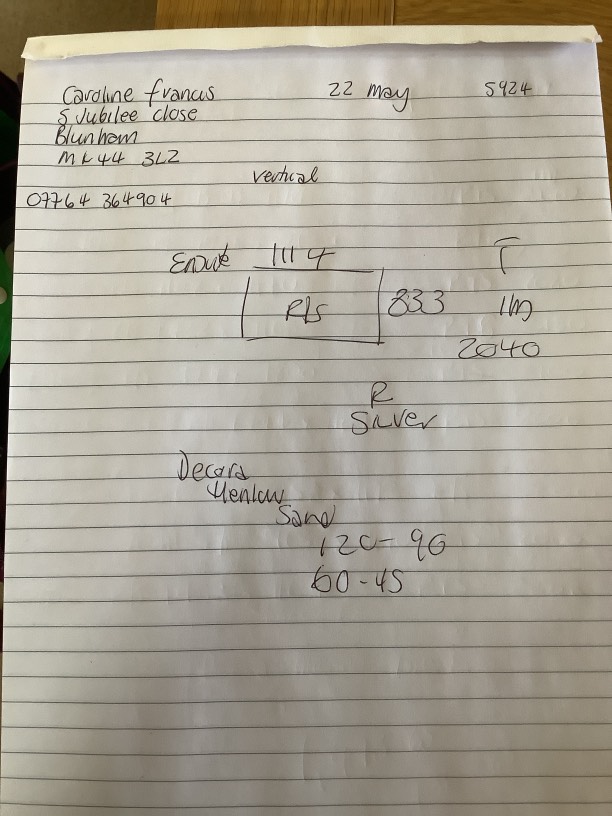 Caroline francis 22 may 5924
5 Jubilee close
Blunham
MK44 3LZ
vertical
07764 364904
1114 T
R/s 833 1m
2040
R
Silver
Decora
Henlow
Sand
120-90
60-45